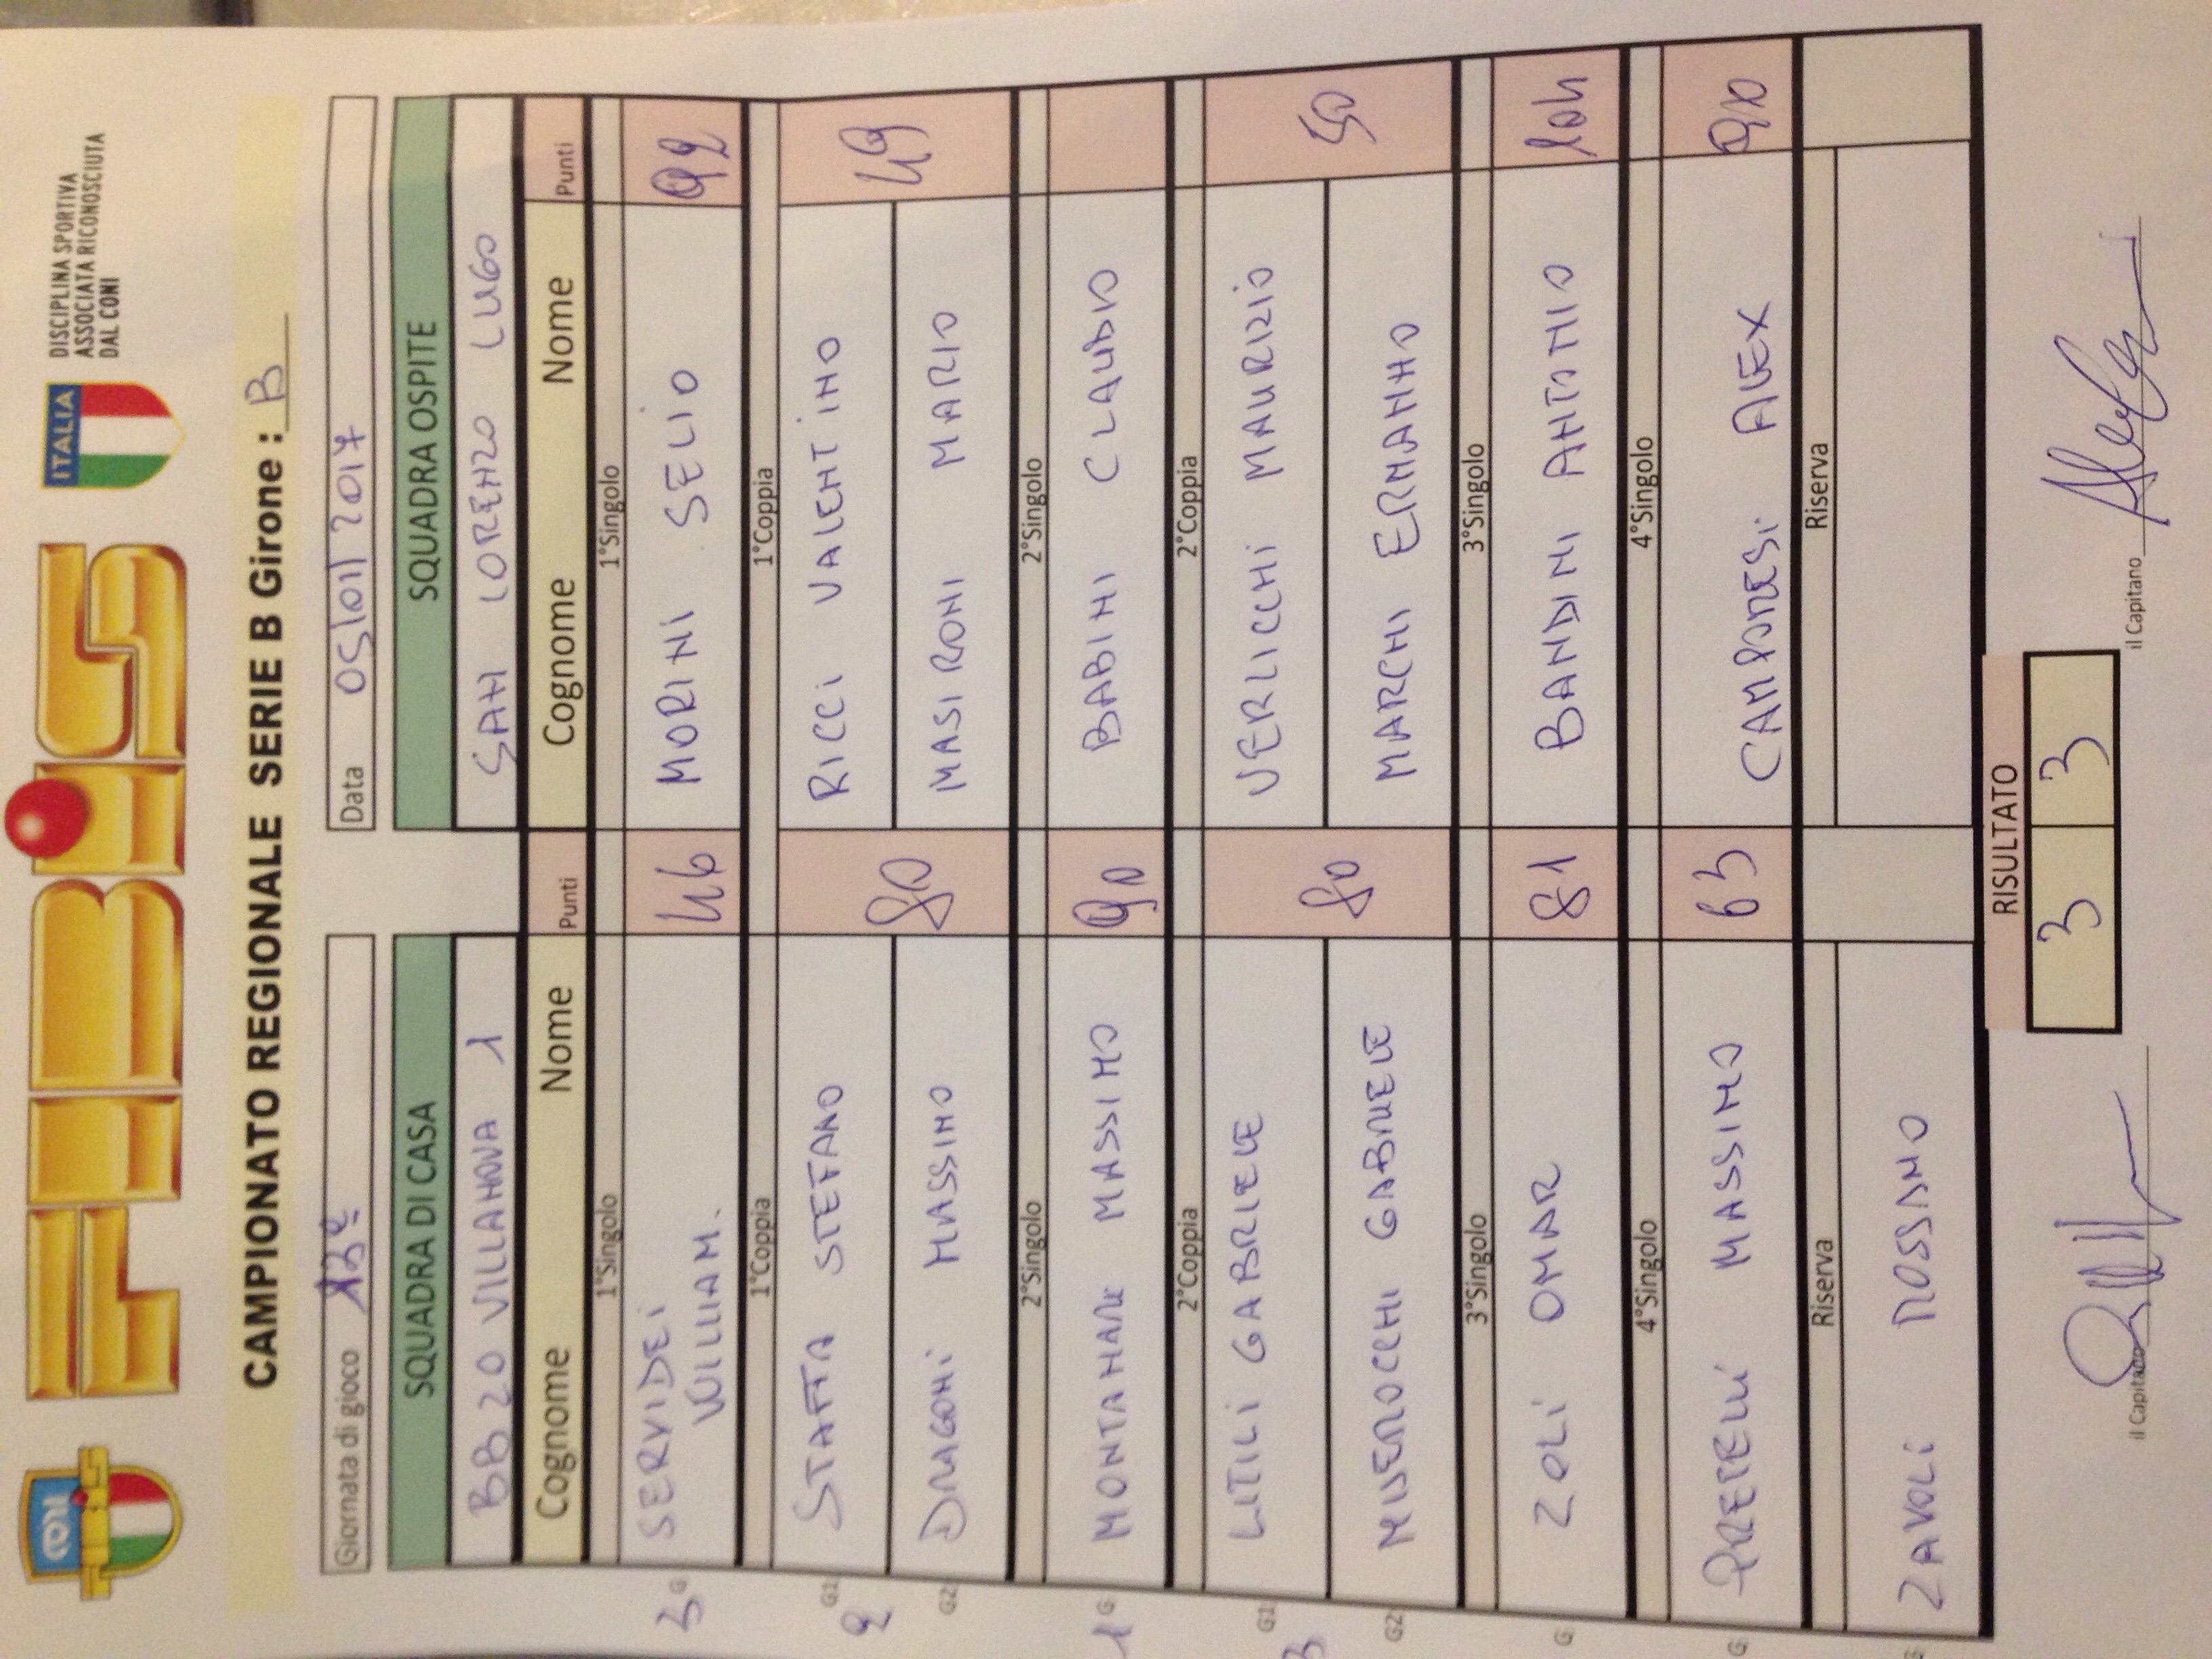 FIBiS
ITALIA
DISCIPLINA SPORTIVA
ASSOCIATA RICONOSCIUTA
DAL CONI
CAMPIONATO REGIONALE SERIE B Girone : B
Giornata di gioco 13ª
Data 05/01/2017
SQUADRA DI CASA SQUADRA OSPITE
BB 20 VILLANOVA 1 SAN LORENZO LUGO
Cognome Nome Punti Cognome Nome Punti
1°Singolo 1°Singolo
3 G SERVIDEI WILLIAM. 46 MORINI SELIO 92
1°Coppia 1°Coppia
G1 STAFFA STEFANO RICCI VALENTINO
2 80 49
G2 DRAGONI MASSIMO MASIRONI MARIO
2°Singolo 2°Singolo
1 G MONTANARI MASSIMO 90 BABINI CLAUDIO
2°Coppia 2°Coppia
G1 LITILI GABRIELE VERLICCHI MAURIZIO
3 80 50
G2 MISEROCCHI GABRIELE MARCHI ERMANNO
3°Singolo 3°Singolo
G ZOLI OMAR 81 BANDINI ANTONIO 104
4°Singolo 4°Singolo
G PRETELLI MASSIMO 63 CAMPORESI ALEX 90
Riserva Riserva
ZAVOLI ROSSANO
RISULTATO
3 3
il Capitano il Capitano